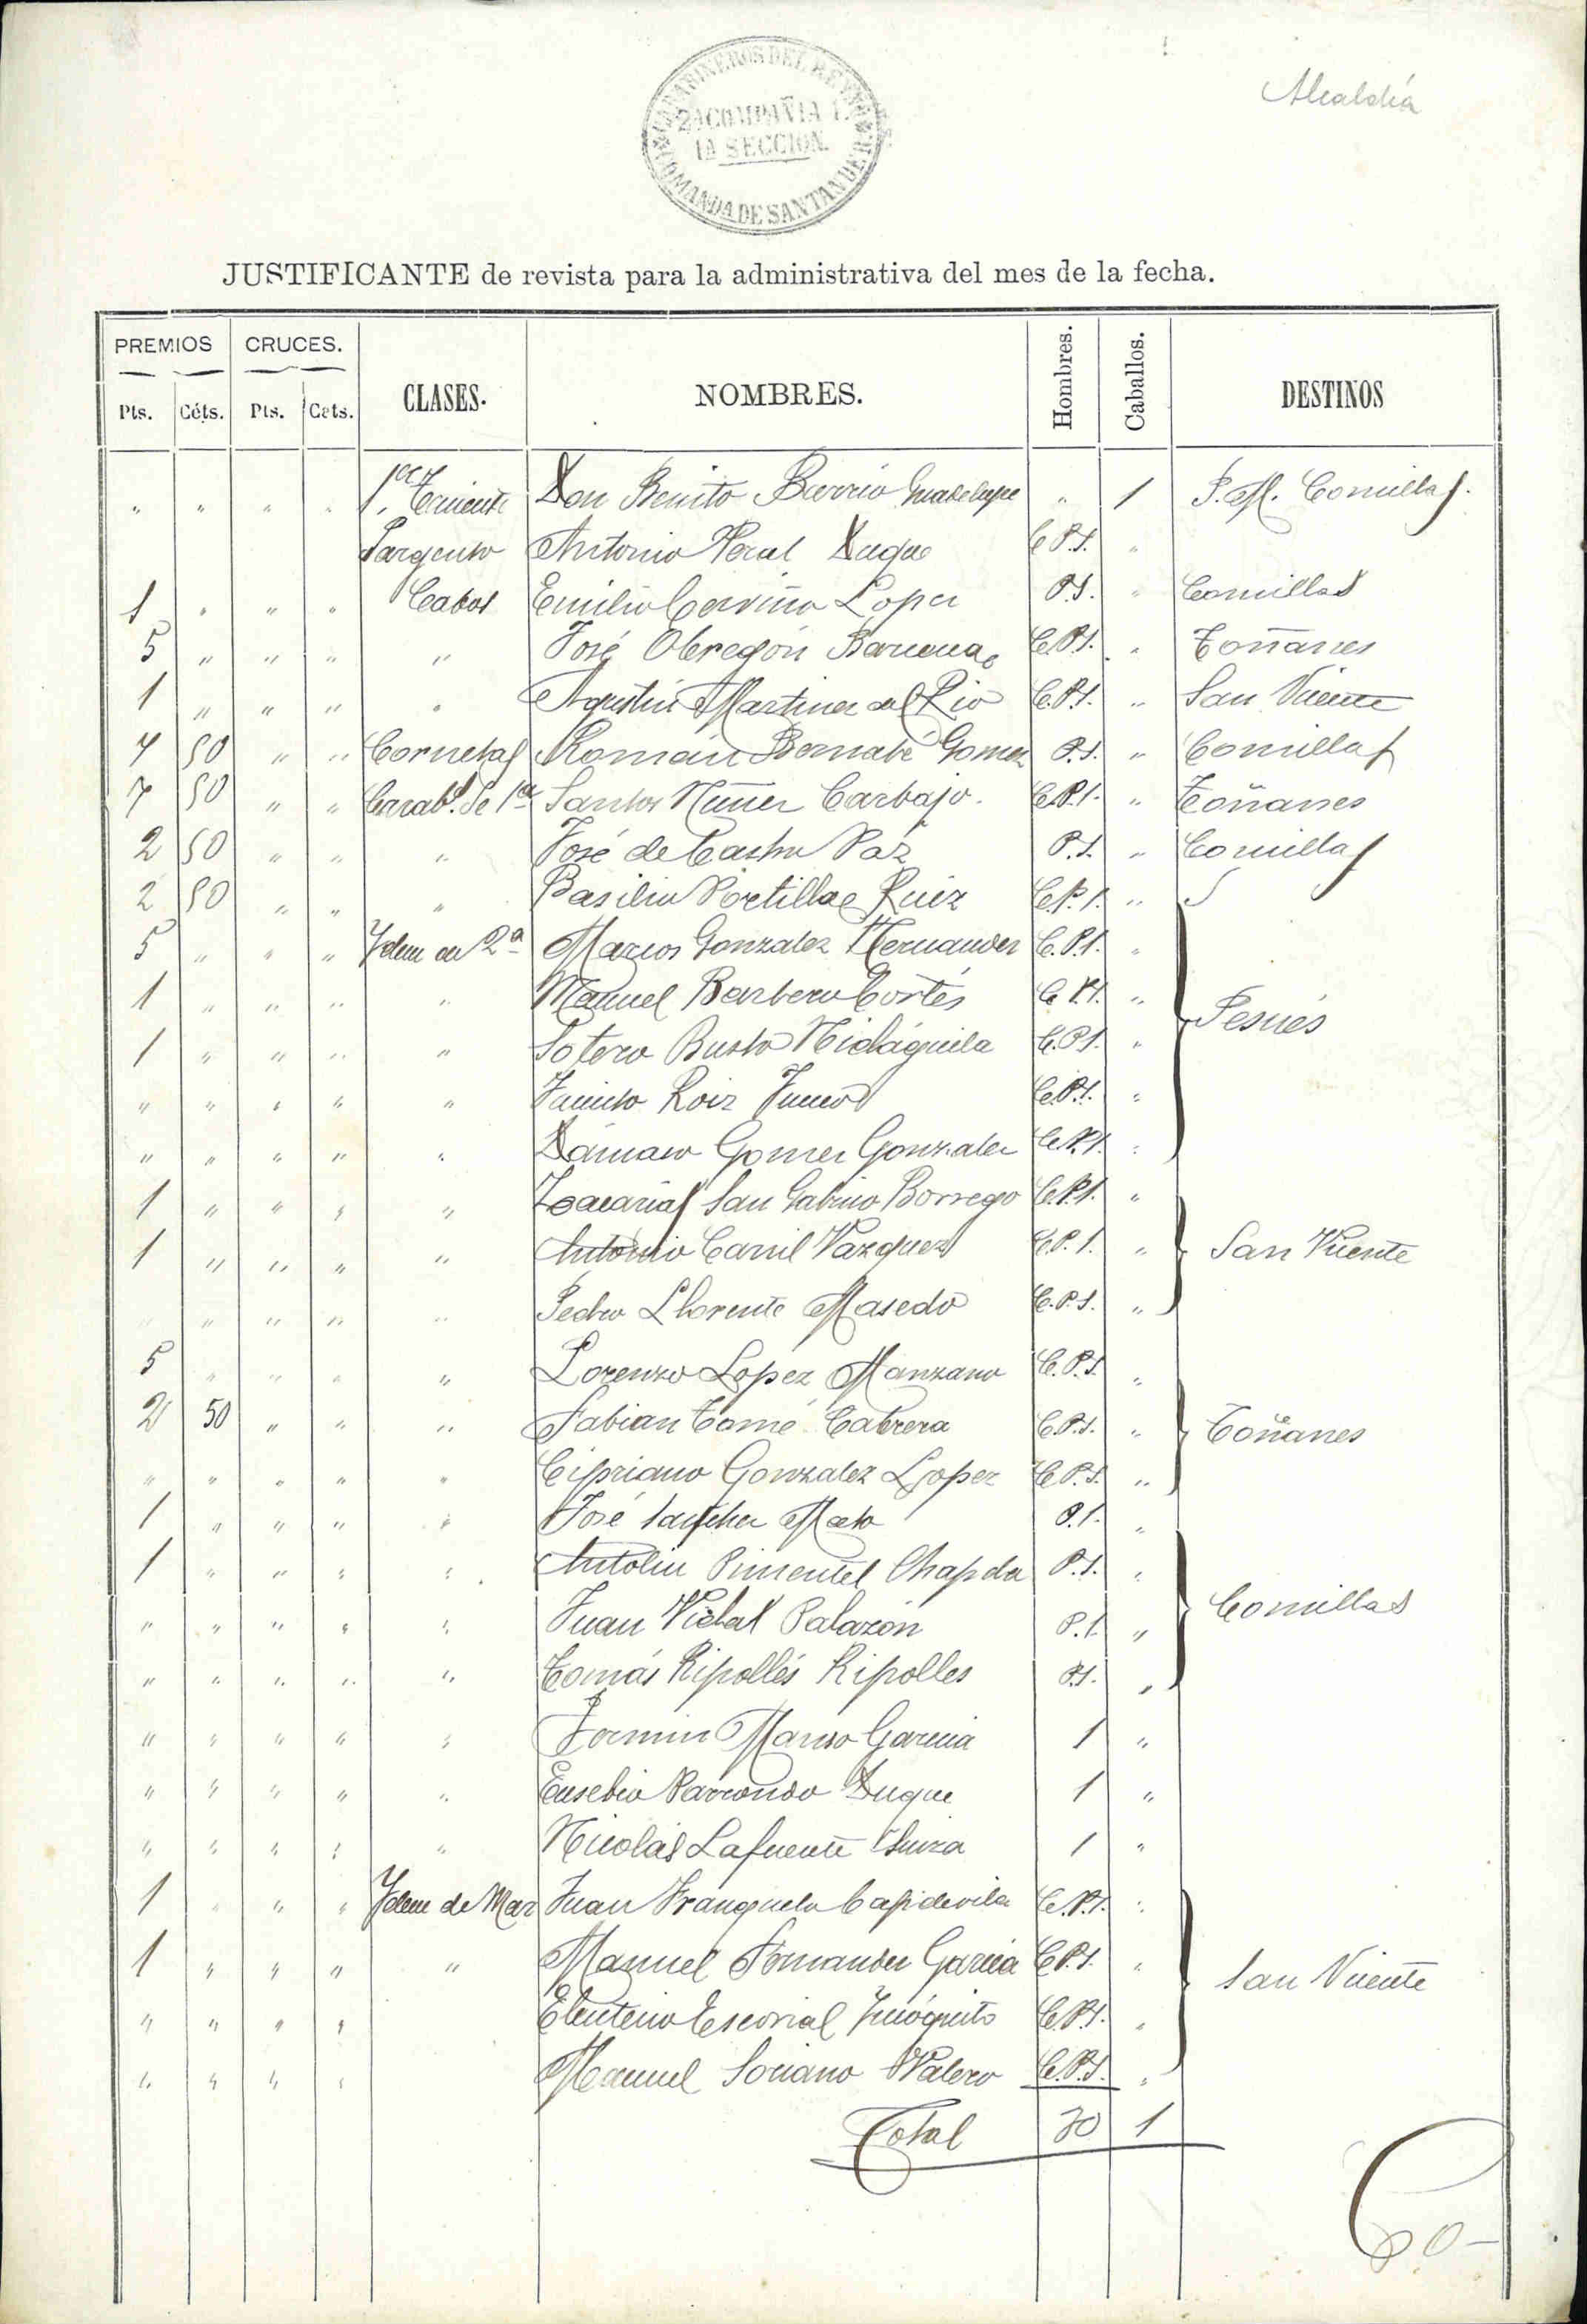 Alcaldía
CARABINEROS DEL REYNO
2ª COMPAÑIA
1ª SECCION.
COMANDA DE SANTANDER
JUSTIFICANTE de revista para la administrativa del mes de la fecha.
PREMIOS CRUCES. CLASES. NOMBRES. Hombres. Caballos. DESTINOS
Pts. Cóts. Pts. Cets.
" " " " 1er Teniente Don Benito Barrio Guadalupe " 1 P. M. Comillas.
Sargento Antonio Peral Duque C.P.S. "
1 " " " Cabos Emilio Cerviño Lopez P.S. " Comillas
5 " " " " José Obregón Barcena C.P.S. " Toñanes
1 " " " " Agustin Martinez del Rio C.P.S. " San Vicente
7 50 " " Cornetas Román Bernabé Gomez P.S. " Comillas
7 50 " " Carab.s de 1ª Santos Nuñez Carbajo. C.P.S. " Toñanes
2 50 " " " José de Castro Páz P.S. " Comillas
2 50 " " " Basilio Portilla Ruiz C.P.S. "
5 " " " Idem de 2ª Marcos Gonzalez Hernandez C.P.S. "
1 " " " " Manuel Barbero Cortés C.P.S. "
1 " " " " Sotero Busto Nidáguila C.P.S. " Pesués
" " " " " Jacinto Roiz Juneo C.P.S. "
" " " " " Dámaso Gomez Gonzalez C.P.S. "
1 " " " " Zacarias San Gabino Borrego C.P.S. "
1 " " " " Antonio Canil Vazquez C.P.S. " San Vicente
" " " " " Pedro Llorente Masedo C.P.S. "
5 " " " " Lorenzo Lopez Manzano C.P.S. "
2 50 " " " Fabian Tomé Cabrera C.P.S. " Toñanes
" " " " " Cipriano Gonzalez Lopez C.P.S. "
1 " " " " José Sanchez Mato P.S. "
1 " " " " Antolin Pimentel Chapda P.S. "
" " " " " Juan Vidal Palazón P.S. " Comillas
" " " " " Tomás Ripollés Ripolles P.S. "
" " " " " Fermin Manso Garcia 1 "
" " " " " Eusebio Parrondo Duque 1 "
" " " " " Nicolás Lafuente 1 "
1 " " " Idem de Mar Juan Franquelo Capdevila C.P.S. "
1 " " " " Manuel Fernandez Garcia C.P.S. " San Vicente
" " " " Eleuterio Escorial Incógnito C.P.S. "
" " " " Manuel Soriano Valero C.P.S. "
Total 30 1